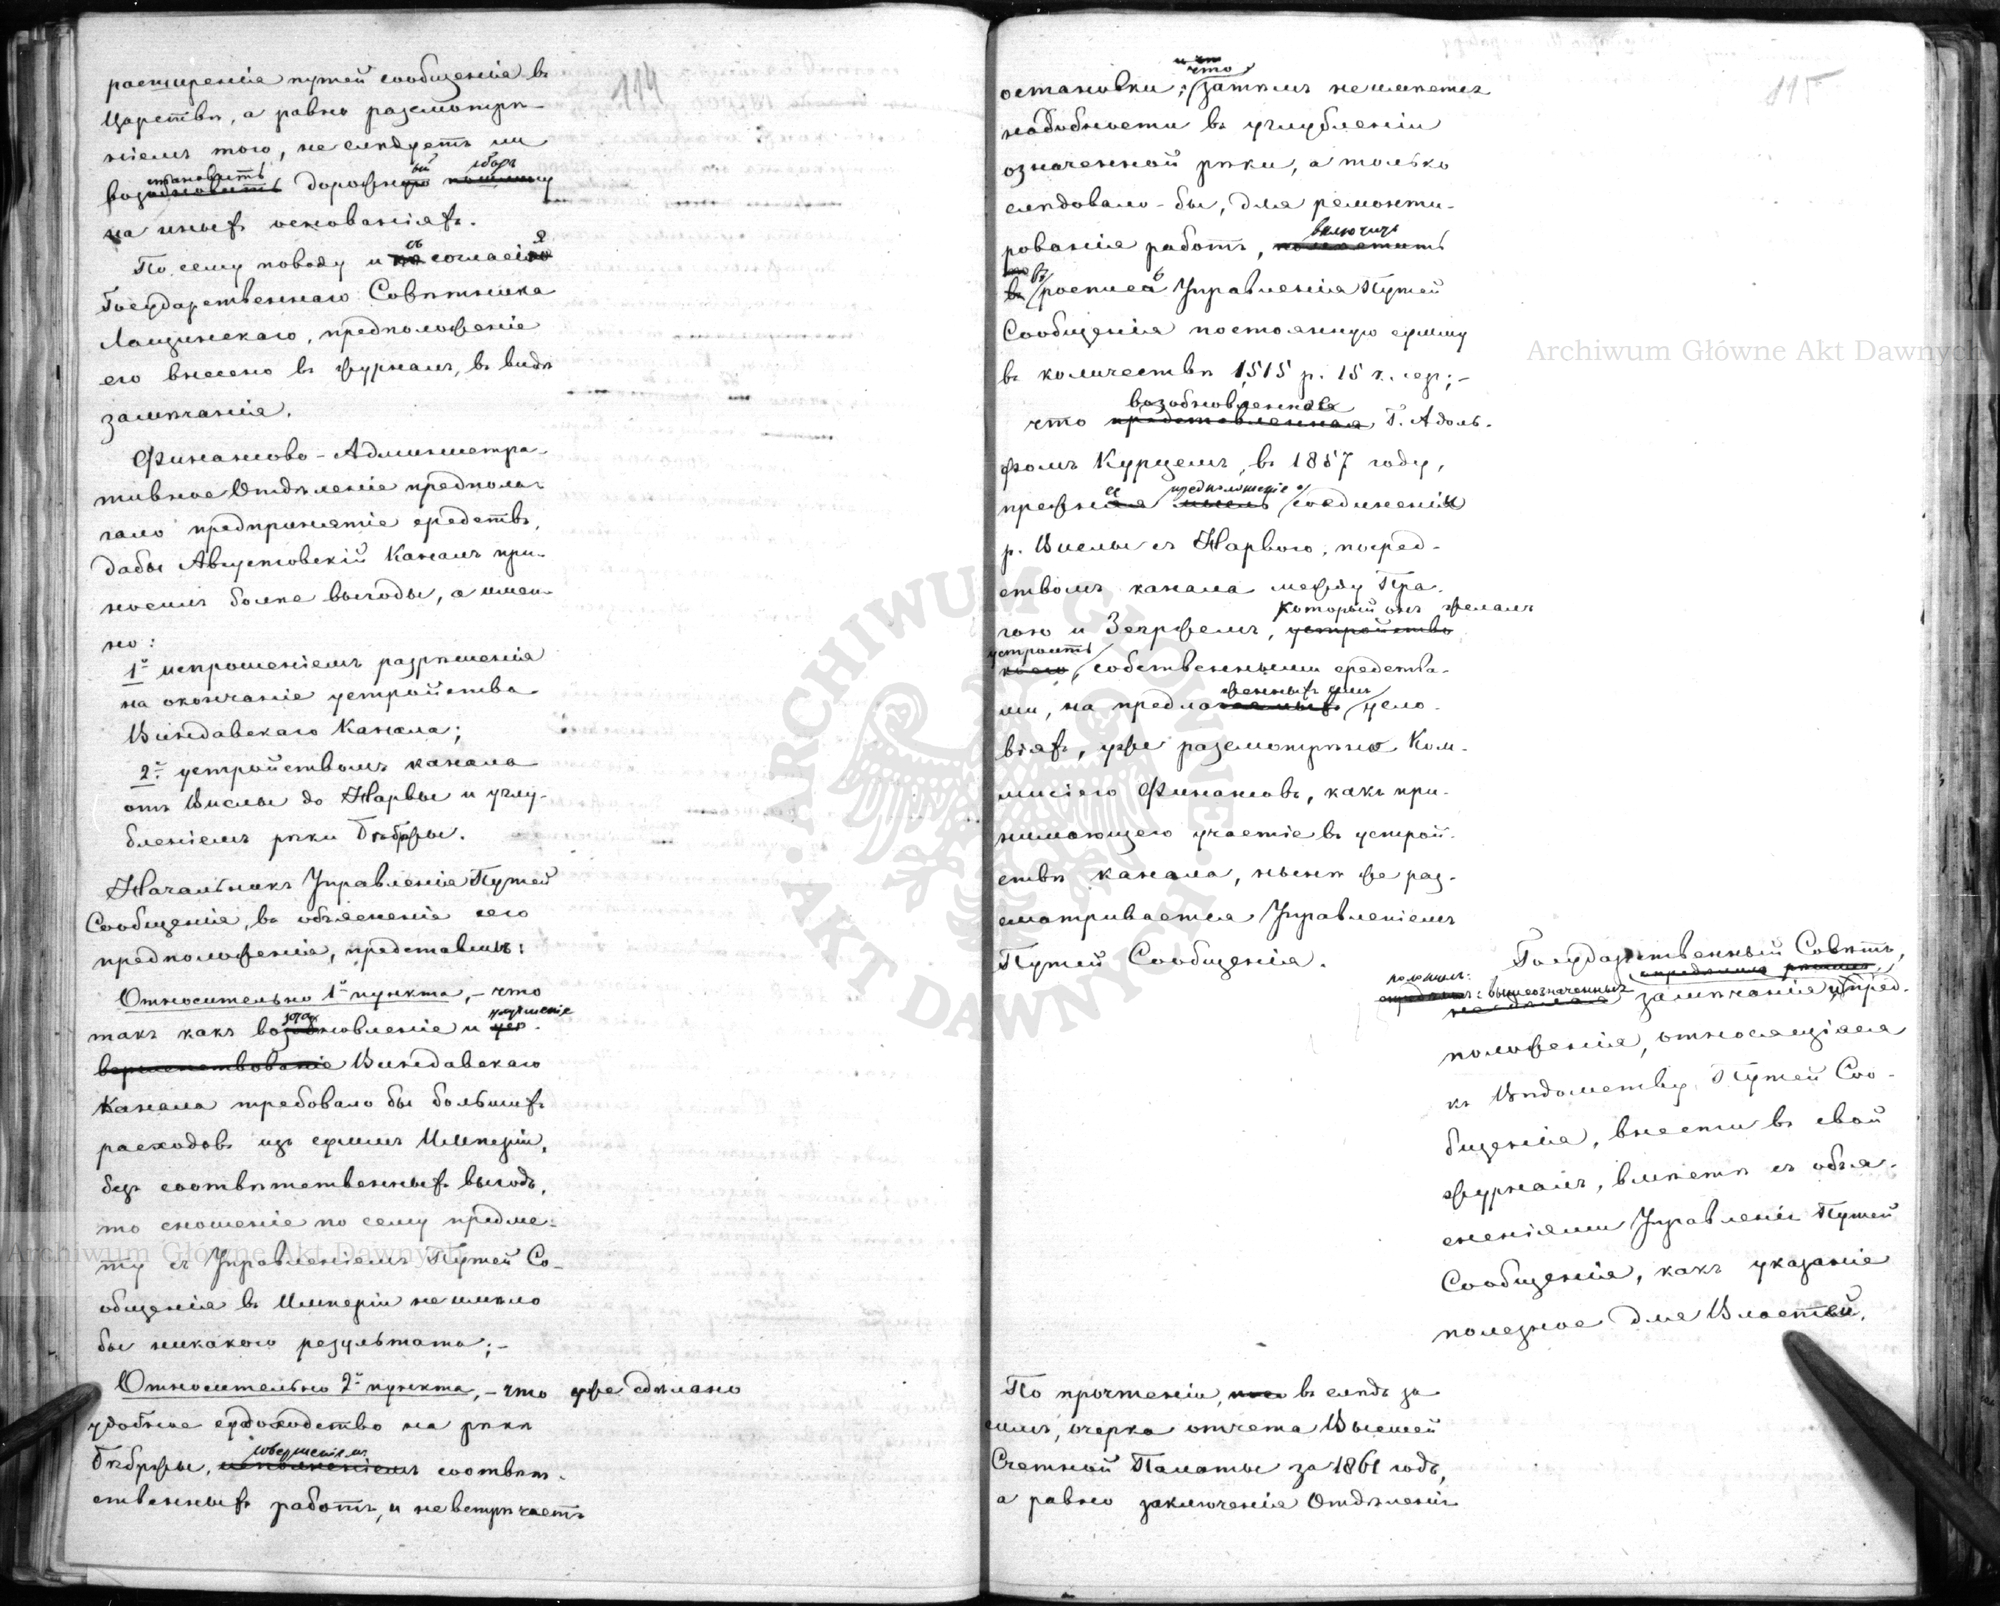 114
расширенія путей сообщенія въ
Царствѣ, а равно разсмотрѣ-
ніемъ того, не слѣдуетъ ли
становить ый сборъ
возобновить дорожную пошлину
на иныхъ основаніяхъ.
По сему поводу и съ согласія
Государственнаго Совѣтника
Лащинскаго, предположеніе
его внесено въ журналъ, въ видѣ
замѣчанія.
Финансово-Администра-
тивное Отдѣленіе предпола-
гало предпринятіе средствъ,
дабы Августовскій Каналъ при-
носилъ болѣе выгоды, а имен-
но:
1º испрошеніемъ разрѣшенія
на окончаніе устройства
Виндавскаго Канала;
2º устройствомъ канала
отъ Вислы до Нарвы и углу-
бленіемъ рѣки Бѣбржы.
Начальникъ Управленія Путей
Сообщенія, въ объясненіе сего
предположенія, представилъ:
Относительно 1º пункта, - что
такъ какъ возобновленіе и улучшеніе
вершенствованіе Виндавскаго
Канала требовало бы большихъ
расходовъ изъ суммъ Имперіи,
безъ соотвѣтственныхъ выгодъ,
то сношеніе по сему предме-
ту съ Управленіемъ Путей Со-
общенія въ Имперіи не имѣло
бы никакого результата; -
Относительно 2º пункта, - что уже сдѣлано
удобное судоходство на рѣкѣ
совершеніемъ
Бѣбржы, исполненіемъ соотвѣт-
ственныхъ работъ, и не встрѣчаетъ
115
что
остановки; затѣмъ не имѣетъ
надобности въ углубленіи
означенной рѣки, а только
слѣдовало-бы, для ремонти-
включить
рованія работъ, помѣстить
въ росписа Управленія Путей
Сообщенія постоянную сумму
въ количествѣ 1,515 р. 15 к. сер; -
возобновленное
что представленная Г. Адоль-
фомъ Курцемъ, въ 1857 году,
предположеніе о
прежнее мысль соединеніи
р. Вислы съ Нарвою, посред-
ствомъ канала между Пра-
который онъ желалъ
гою и Зегржемъ, устройство
устроить
коего, собственными средства-
женныхъ имъ
ми, на предлагаемыхъ усло-
віяхъ, уже разсмотрѣно Ком-
мисіею Финансовъ, какъ при-
нимающею участіе въ устрой-
ствѣ канала, нынѣ же раз-
сматривается Управленіемъ
Путей Сообщенія.
Государственный Совѣтъ,
опредѣлилъ
положилъ: вышеозначенныя
замѣчанія и пред-
положенія, относящіяся
къ Вѣдомству Путей Соо-
бщенія, внести въ свой
журналъ, вмѣстѣ съ объя-
сненіями Управленія Путей
Сообщенія, какъ указаніе
полезное для Властей.
По прочтеніи, въ слѣдъ за
симъ, очерка отчета Высшей
Счетной Палаты за 1861 годъ,
а равно заключенія Отдѣленія
Archiwum Główne Akt Dawnych
Archiwum Główne Akt Dawnych
ARCHIWUM GŁÓWNE
AKT DAWNYCH